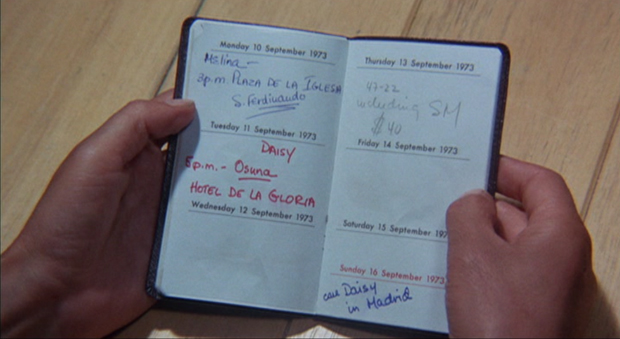 Monday 10 September 1973
Melina –
3p.m. PLAZA DE LA IGLESIA
S. Ferdinando
Tuesday 11 September 1973
DAISY
5 p.m. – Osuna
HOTEL DE LA GLORIA
Wednesday 12 September 1973
Thursday 13 September 1973
47-22
including SM
$40
Friday 14 September 1973
Saturday 15 September 197
Sunday 16 September 1973
call Daisy
in Madrid